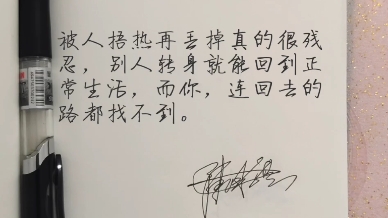 被人捂热再丢掉真的很残
忍，别人转身就能回到正
常生活，而你，连回去的
路都找不到。